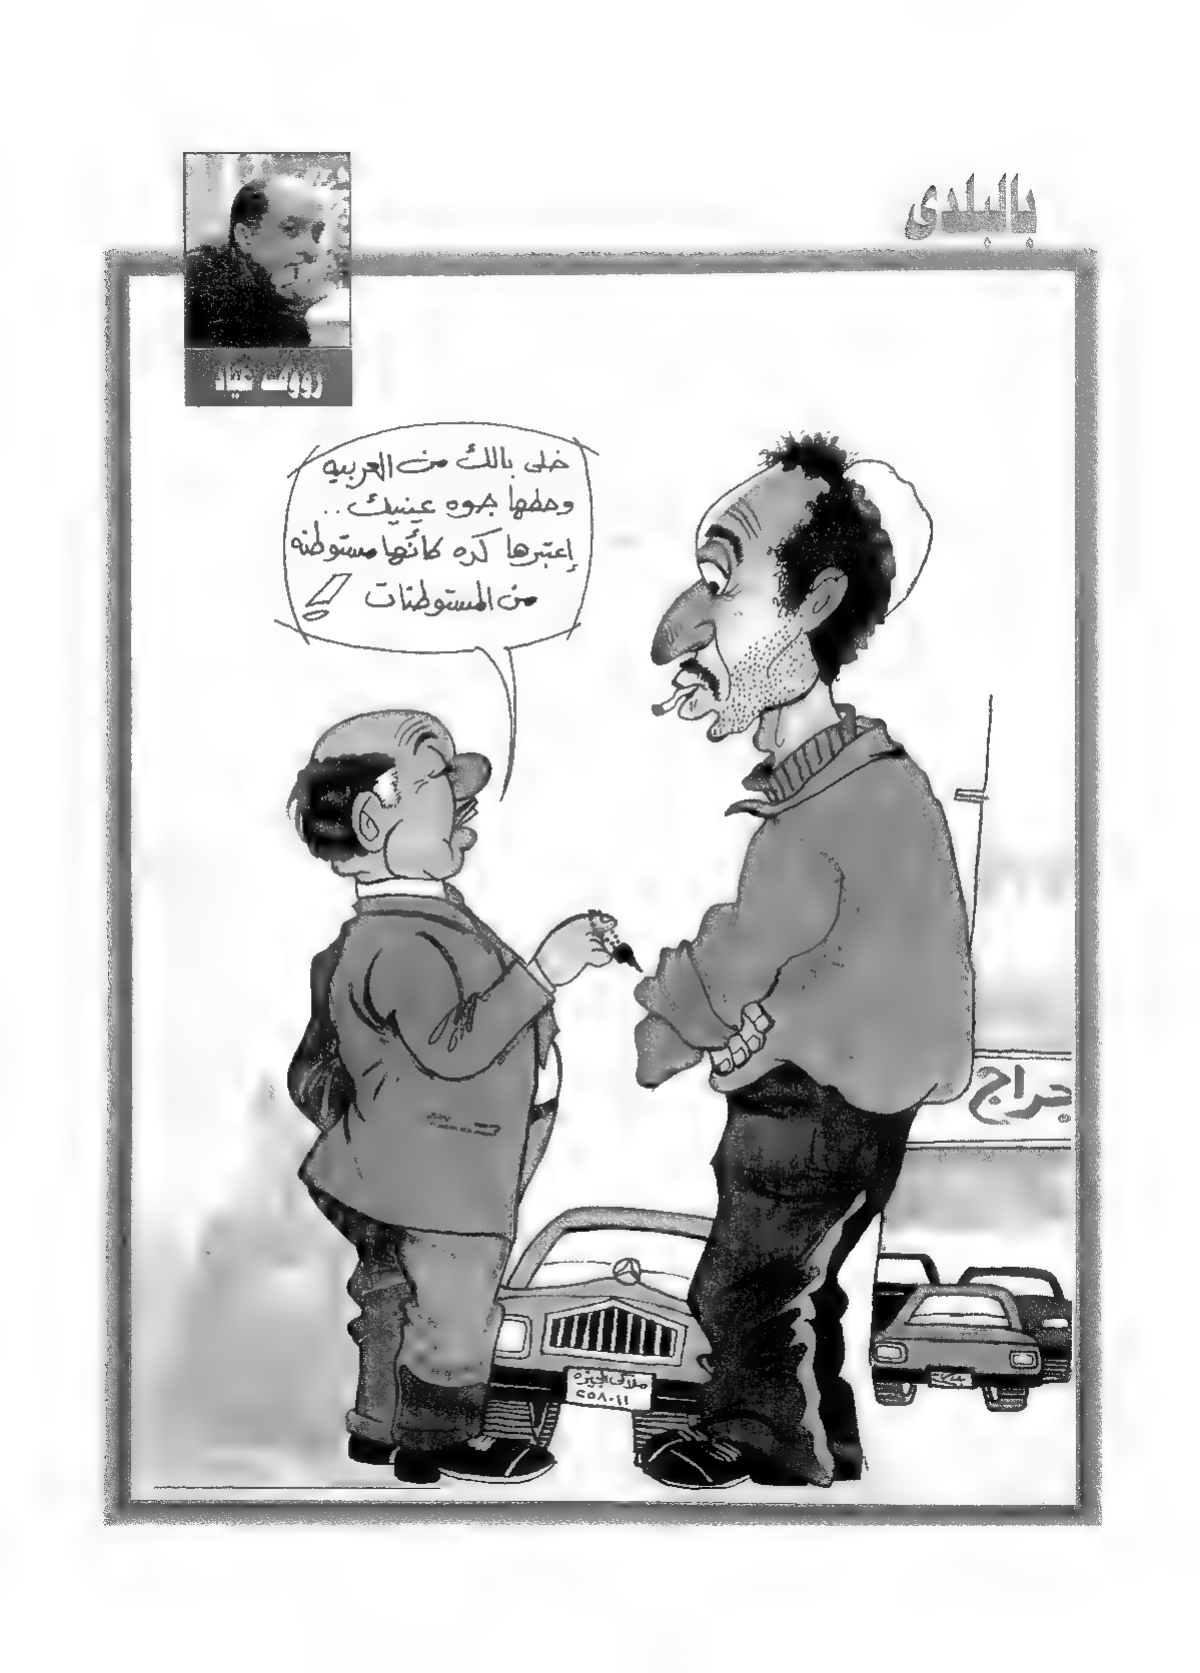 بالبلدى
رؤوف عياد
خلى بالك من العربيه
وحطها جوه عينيك..
إعتبرها كده كأنها مستوطنه
من المستوطنات !
جراج
ملاكى الجيزه
٢٥٨٠١١